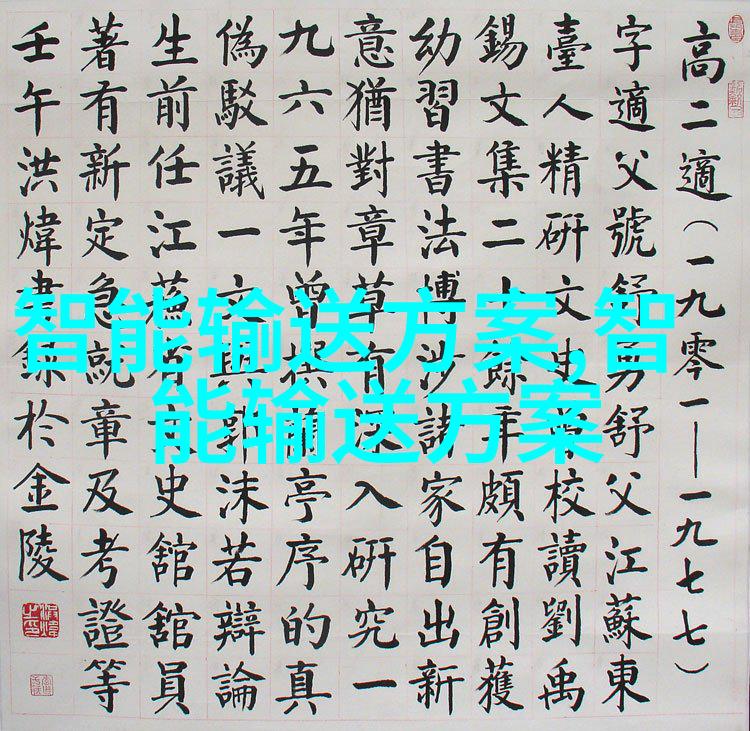 高二適（一九零一——一九七七）
字適父號舒舒父江蘇東
臺人精研文史曾校讀劉禹
錫文集二十餘年頗有創獲
幼習書法博涉諸家自出新
意猶對章草有深入研究一
九六五年曾撰蘭亭序的真
偽駁議一文與郭沫若辯論
生前任江蘇省文史館館員
著有新定急就章及考證等
壬午洪煒書錄於金陵
智能输送方案,智
能输送方案